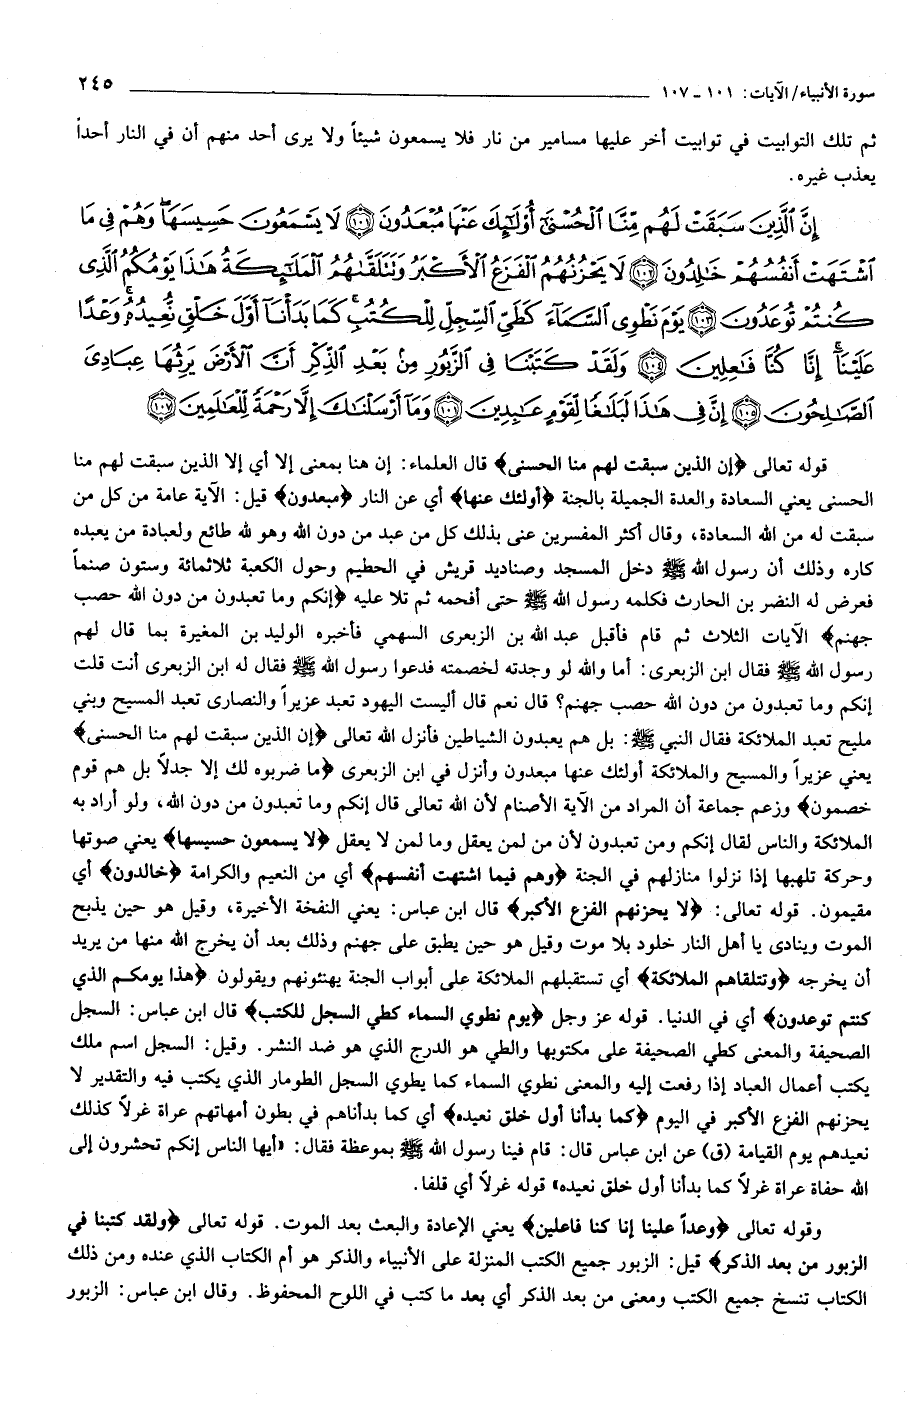 سورة الأنبياء/ الآيات: ١٠١ ـ ١٠٧ ٢٤٥
ثم تلك التوابيت في توابيت أخر عليها مسامير من نار فلا يسمعون شيئاً ولا يرى أحد منهم أن في النار أحداً
يعذب غيره.
إِنَّ ٱلَّذِينَ سَبَقَتْ لَهُم مِّنَّا ٱلْحُسْنَىٰٓ أُوْلَٰٓئِكَ عَنْهَا مُبْعَدُونَ ﴿١٠١﴾ لَا يَسْمَعُونَ حَسِيسَهَا ۖ وَهُمْ فِي مَا
ٱشْتَهَتْ أَنفُسُهُمْ خَٰلِدُونَ ﴿١٠٢﴾ لَا يَحْزُنُهُمُ ٱلْفَزَعُ ٱلْأَكْبَرُ وَتَتَلَقَّىٰهُمُ ٱلْمَلَٰٓئِكَةُ هَٰذَا يَوْمُكُمُ ٱلَّذِى
كُنتُمْ تُوعَدُونَ ﴿١٠٣﴾ يَوْمَ نَطْوِى ٱلسَّمَآءَ كَطَىِّ ٱلسِّجِلِّ لِلْكُتُبِ ۚ كَمَا بَدَأْنَآ أَوَّلَ خَلْقٍ نُّعِيدُهُۥ ۚ وَعْدًا
عَلَيْنَآ ۚ إِنَّا كُنَّا فَٰعِلِينَ ﴿١٠٤﴾ وَلَقَدْ كَتَبْنَا فِى ٱلزَّبُورِ مِنۢ بَعْدِ ٱلذِّكْرِ أَنَّ ٱلْأَرْضَ يَرِثُهَا عِبَادِىَ
ٱلصَّٰلِحُونَ ﴿١٠٥﴾ إِنَّ فِى هَٰذَا لَبَلَٰغًا لِّقَوْمٍ عَٰبِدِينَ ﴿١٠٦﴾ وَمَآ أَرْسَلْنَٰكَ إِلَّا رَحْمَةً لِّلْعَٰلَمِينَ ﴿١٠٧﴾
قوله تعالى ﴿إن الذين سبقت لهم منا الحسنى﴾ قال العلماء: إن هنا بمعنى إلا أي إلا الذين سبقت لهم منا
الحسنى يعني السعادة والعدة الجميلة بالجنة ﴿أولئك عنها﴾ أي عن النار ﴿مبعدون﴾ قيل: الآية عامة من كل من
سبقت له من الله السعادة، وقال أكثر المفسرين عنى بذلك كل من عبد من دون الله وهو لله طائع ولعبادة من يعبده
كاره وذلك أن رسول الله ﷺ دخل المسجد وصناديد قريش في الحطيم وحول الكعبة ثلاثمائة وستون صنماً
فعرض له النضر بن الحارث فكلمه رسول الله ﷺ حتى أفحمه ثم تلا عليه ﴿إنكم وما تعبدون من دون الله حصب
جهنم﴾ الآيات الثلاث ثم قام فأقبل عبد الله بن الزبعرى السهمي فأخبره الوليد بن المغيرة بما قال لهم
رسول الله ﷺ فقال ابن الزبعرى: أما والله لو وجدته لخصمته فدعوا رسول الله ﷺ فقال له ابن الزبعرى أنت قلت
إنكم وما تعبدون من دون الله حصب جهنم؟ قال نعم قال أليست اليهود تعبد عزيراً والنصارى تعبد المسيح وبني
مليح تعبد الملائكة فقال النبي ﷺ: بل هم يعبدون الشياطين فأنزل الله تعالى ﴿إن الذين سبقت لهم منا الحسنى﴾
يعني عزيراً والمسيح والملائكة أولئك عنها مبعدون وأنزل في ابن الزبعرى ﴿ما ضربوه لك إلا جدلاً بل هم قوم
خصمون﴾ وزعم جماعة أن المراد من الآية الأصنام لأن الله تعالى قال إنكم وما تعبدون من دون الله، ولو أراد به
الملائكة والناس لقال إنكم ومن تعبدون لأن من لمن يعقل وما لمن لا يعقل ﴿لا يسمعون حسيسها﴾ يعني صوتها
وحركة تلهبها إذا نزلوا منازلهم في الجنة ﴿وهم فيما اشتهت أنفسهم﴾ أي من النعيم والكرامة ﴿خالدون﴾ أي
مقيمون. قوله تعالى: ﴿لا يحزنهم الفزع الأكبر﴾ قال ابن عباس: يعني النفخة الأخيرة، وقيل هو حين يذبح
الموت وينادى يا أهل النار خلود بلا موت وقيل هو حين يطبق على جهنم وذلك بعد أن يخرج الله منها من يريد
أن يخرجه ﴿وتتلقاهم الملائكة﴾ أي تستقبلهم الملائكة على أبواب الجنة يهنئونهم ويقولون ﴿هذا يومكم الذي
كنتم توعدون﴾ أي في الدنيا. قوله عز وجل ﴿يوم نطوي السماء كطي السجل للكتب﴾ قال ابن عباس: السجل
الصحيفة والمعنى كطي الصحيفة على مكتوبها والطي هو الدرج الذي هو ضد النشر. وقيل: السجل اسم ملك
يكتب أعمال العباد إذا رفعت إليه والمعنى نطوي السماء كما يطوي السجل الطومار الذي يكتب فيه والتقدير لا
يحزنهم الفزع الأكبر في اليوم ﴿كما بدأنا أول خلق نعيده﴾ أي كما بدأناهم في بطون أمهاتهم عراة غرلاً كذلك
نعيدهم يوم القيامة (ق) عن ابن عباس قال: قام فينا رسول الله ﷺ بموعظة فقال: «أيها الناس إنكم تحشرون إلى
الله حفاة عراة غرلاً كما بدأنا أول خلق نعيده» قوله غرلاً أي قلفا.
وقوله تعالى ﴿وعداً علينا إنا كنا فاعلين﴾ يعني الإعادة والبعث بعد الموت. قوله تعالى ﴿ولقد كتبنا في
الزبور من بعد الذكر﴾ قيل: الزبور جميع الكتب المنزلة على الأنبياء والذكر هو أم الكتاب الذي عنده ومن ذلك
الكتاب تنسخ جميع الكتب ومعنى من بعد الذكر أي بعد ما كتب في اللوح المحفوظ. وقال ابن عباس: الزبور